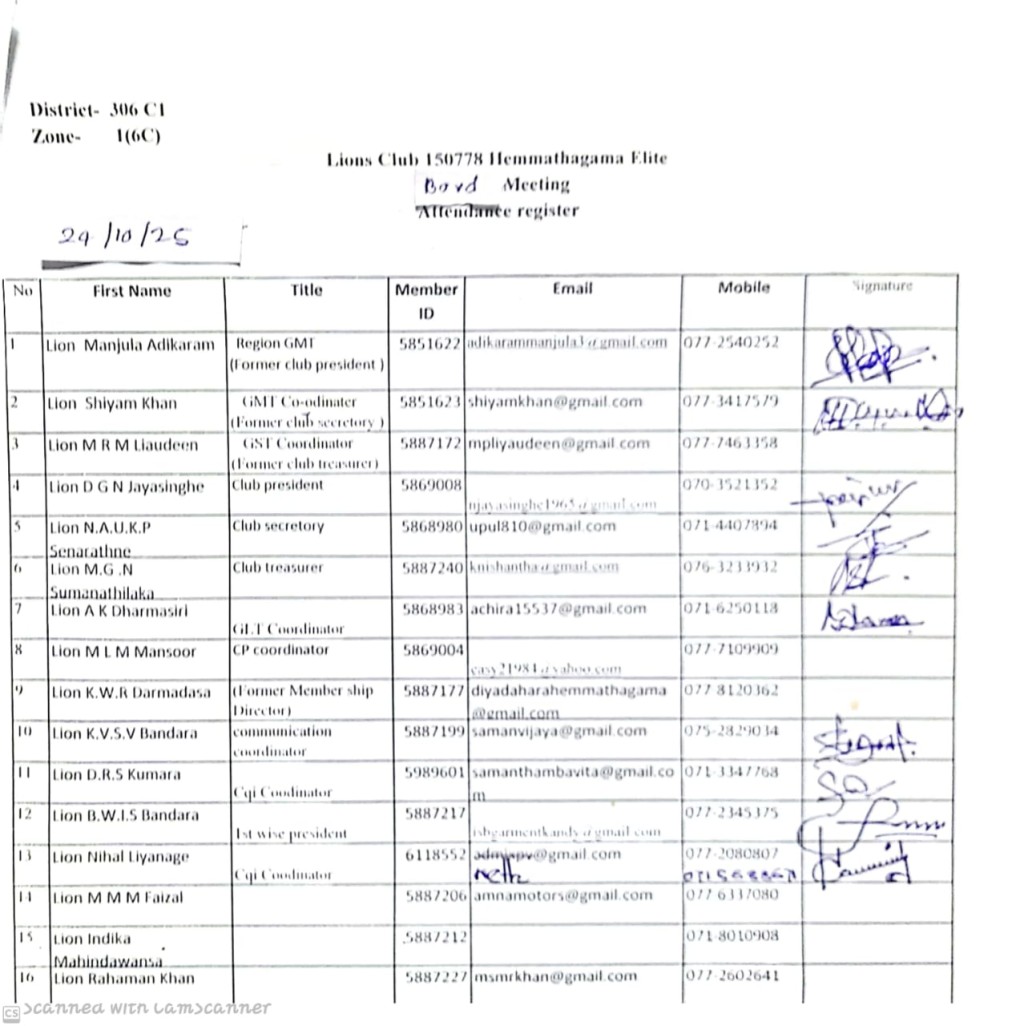 District- 306 C1
Zone- 1(6C)
Lions Club 150778 Hemmathagama Elite
Bord Meeting
Attendance register
29/10/25
No First Name Title Member ID Email Mobile Signature
1 Lion Manjula Adikaram Region GMT (Former club president ) 5851622 adikarammanjula3@gmail.com 077-2540252
2 Lion Shiyam Khan GMT Co-odinater (Former club secretory ) 5851623 shiyamkhan@gmail.com 077-3417579
3 Lion M R M Liaudeen GST Coordinator (Former club treasurer) 5887172 mpliyaudeen@gmail.com 077-7463358
4 Lion D G N Jayasinghe Club president 5869008 njayasinghe1965@gmail.com 070-3521352
5 Lion N.A.U.K.P Senarathne Club secretory 5868980 upul810@gmail.com 071-4407894
6 Lion M.G .N Sumanathilaka Club treasurer 5887240 knishantha@gmail.com 076-3233932
7 Lion A K Dharmasiri GLT Coordinator 5868983 achira15537@gmail.com 071-6250118
8 Lion M L M Mansoor CP coordinator 5869004 easy21984@yahoo.com 077-7109909
9 Lion K.W.R Darmadasa (Former Member ship Director) 5887177 diyadaharahemmathagama@gmail.com 077 8120362
10 Lion K.V.S.V Bandara communication coordinator 5887199 samanvijaya@gmail.com 075-2829034
11 Lion D.R.S Kumara Cqi Coodinator 5989601 samanthambavita@gmail.com 071-3347768
12 Lion B.W.I.S Bandara 1st wise president 5887217 isbgarmentkandy@gmail.com 077-2345375
13 Lion Nihal Liyanage Cqi Coodinator 6118552 @gmail.com 077-2080807
14 Lion M M M Faizal 5887206 amnamotors@gmail.com 077 6337080
15 Lion Indika Mahindawansa 5887212 071-8010908
16 Lion Rahaman Khan 5887227 msmrkhan@gmail.com 077-2602641
CS Scanned with CamScanner